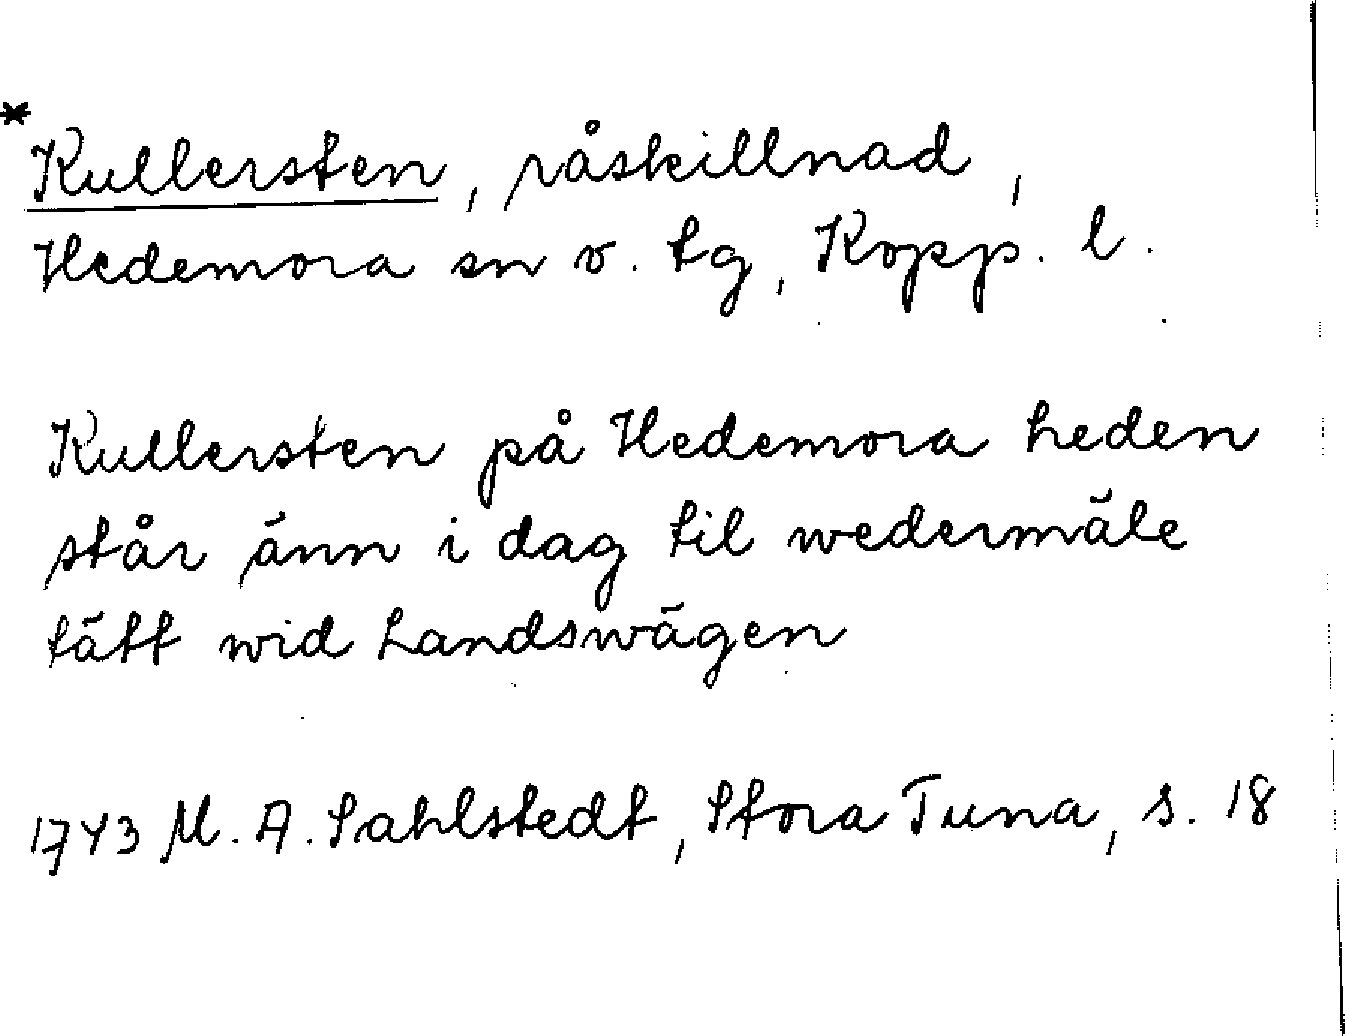 *Kullersten, råskillnad,
Hedemora sn o. tg, Kopp. l.
Kullersten på Hedemora heden
står änn i dag til wedermäle
tätt wid Landswägen
1743 M. A. Sahlstedt, Stora Tuna, s. 18